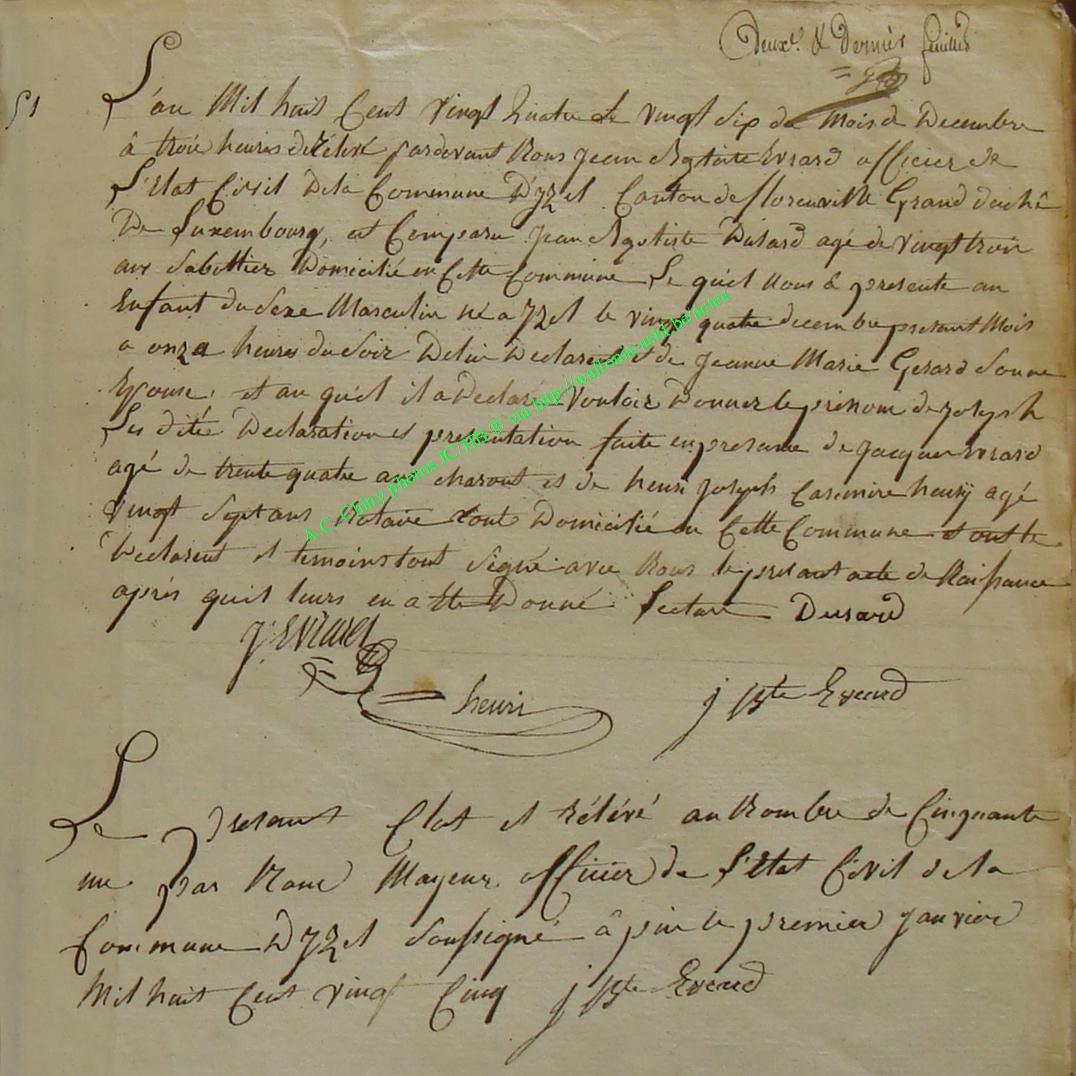 Deux.e & Dernier feuillet
51
L'an Mil huit Cent Vingt Quatre le vingt six du Mois de Decembre
à trois heures de relevé pardevant Nous Jean Bptiste Evrard officier de
L'Etat Civil Dela Commune D'yzel Canton de florenville Grand duché
De Luxembourg, est Comparu Jean Bptiste Dusard agé de Vingt trois
ans Sabottier Domicilié en Cette Commune Le quel Nous à presenté un
Enfant du Sexe Masculin né a yzel le vingt quatre decembre presant Mois
a onze heures du Soir De lui Declarent et de Jeanne Marie Gerard Son
Epouse, et au quel il a Declaré Vouloir Donner le prénom de joseph
Les dite Declaration et presentation faite en presance de jacque Evrard
agé de trente quatre ans charont et de henri joseph Casimire henry agé
Vingt Sept ans Notaire tout Domicilié en Cette Commune et ont le
Declarent et temoins tout Signé avec Nous le presant acte de Naissance
après quil leurs en a Ete Donné Lecture Dusard
J: EVRARd
henri
j Bste Evrard
Le presant Etat est rélévé au Nombre de Cinquante
une par Nous Mayeur officier de L'Etat Civil de la
Commune D'yzel Soussigné à jzel le premier janvier
Mil huit Cent vingt Cinq j Bste Evrard
A.C. Chiny photos JC/THs ® via http://wallonia-asbl.be/actes